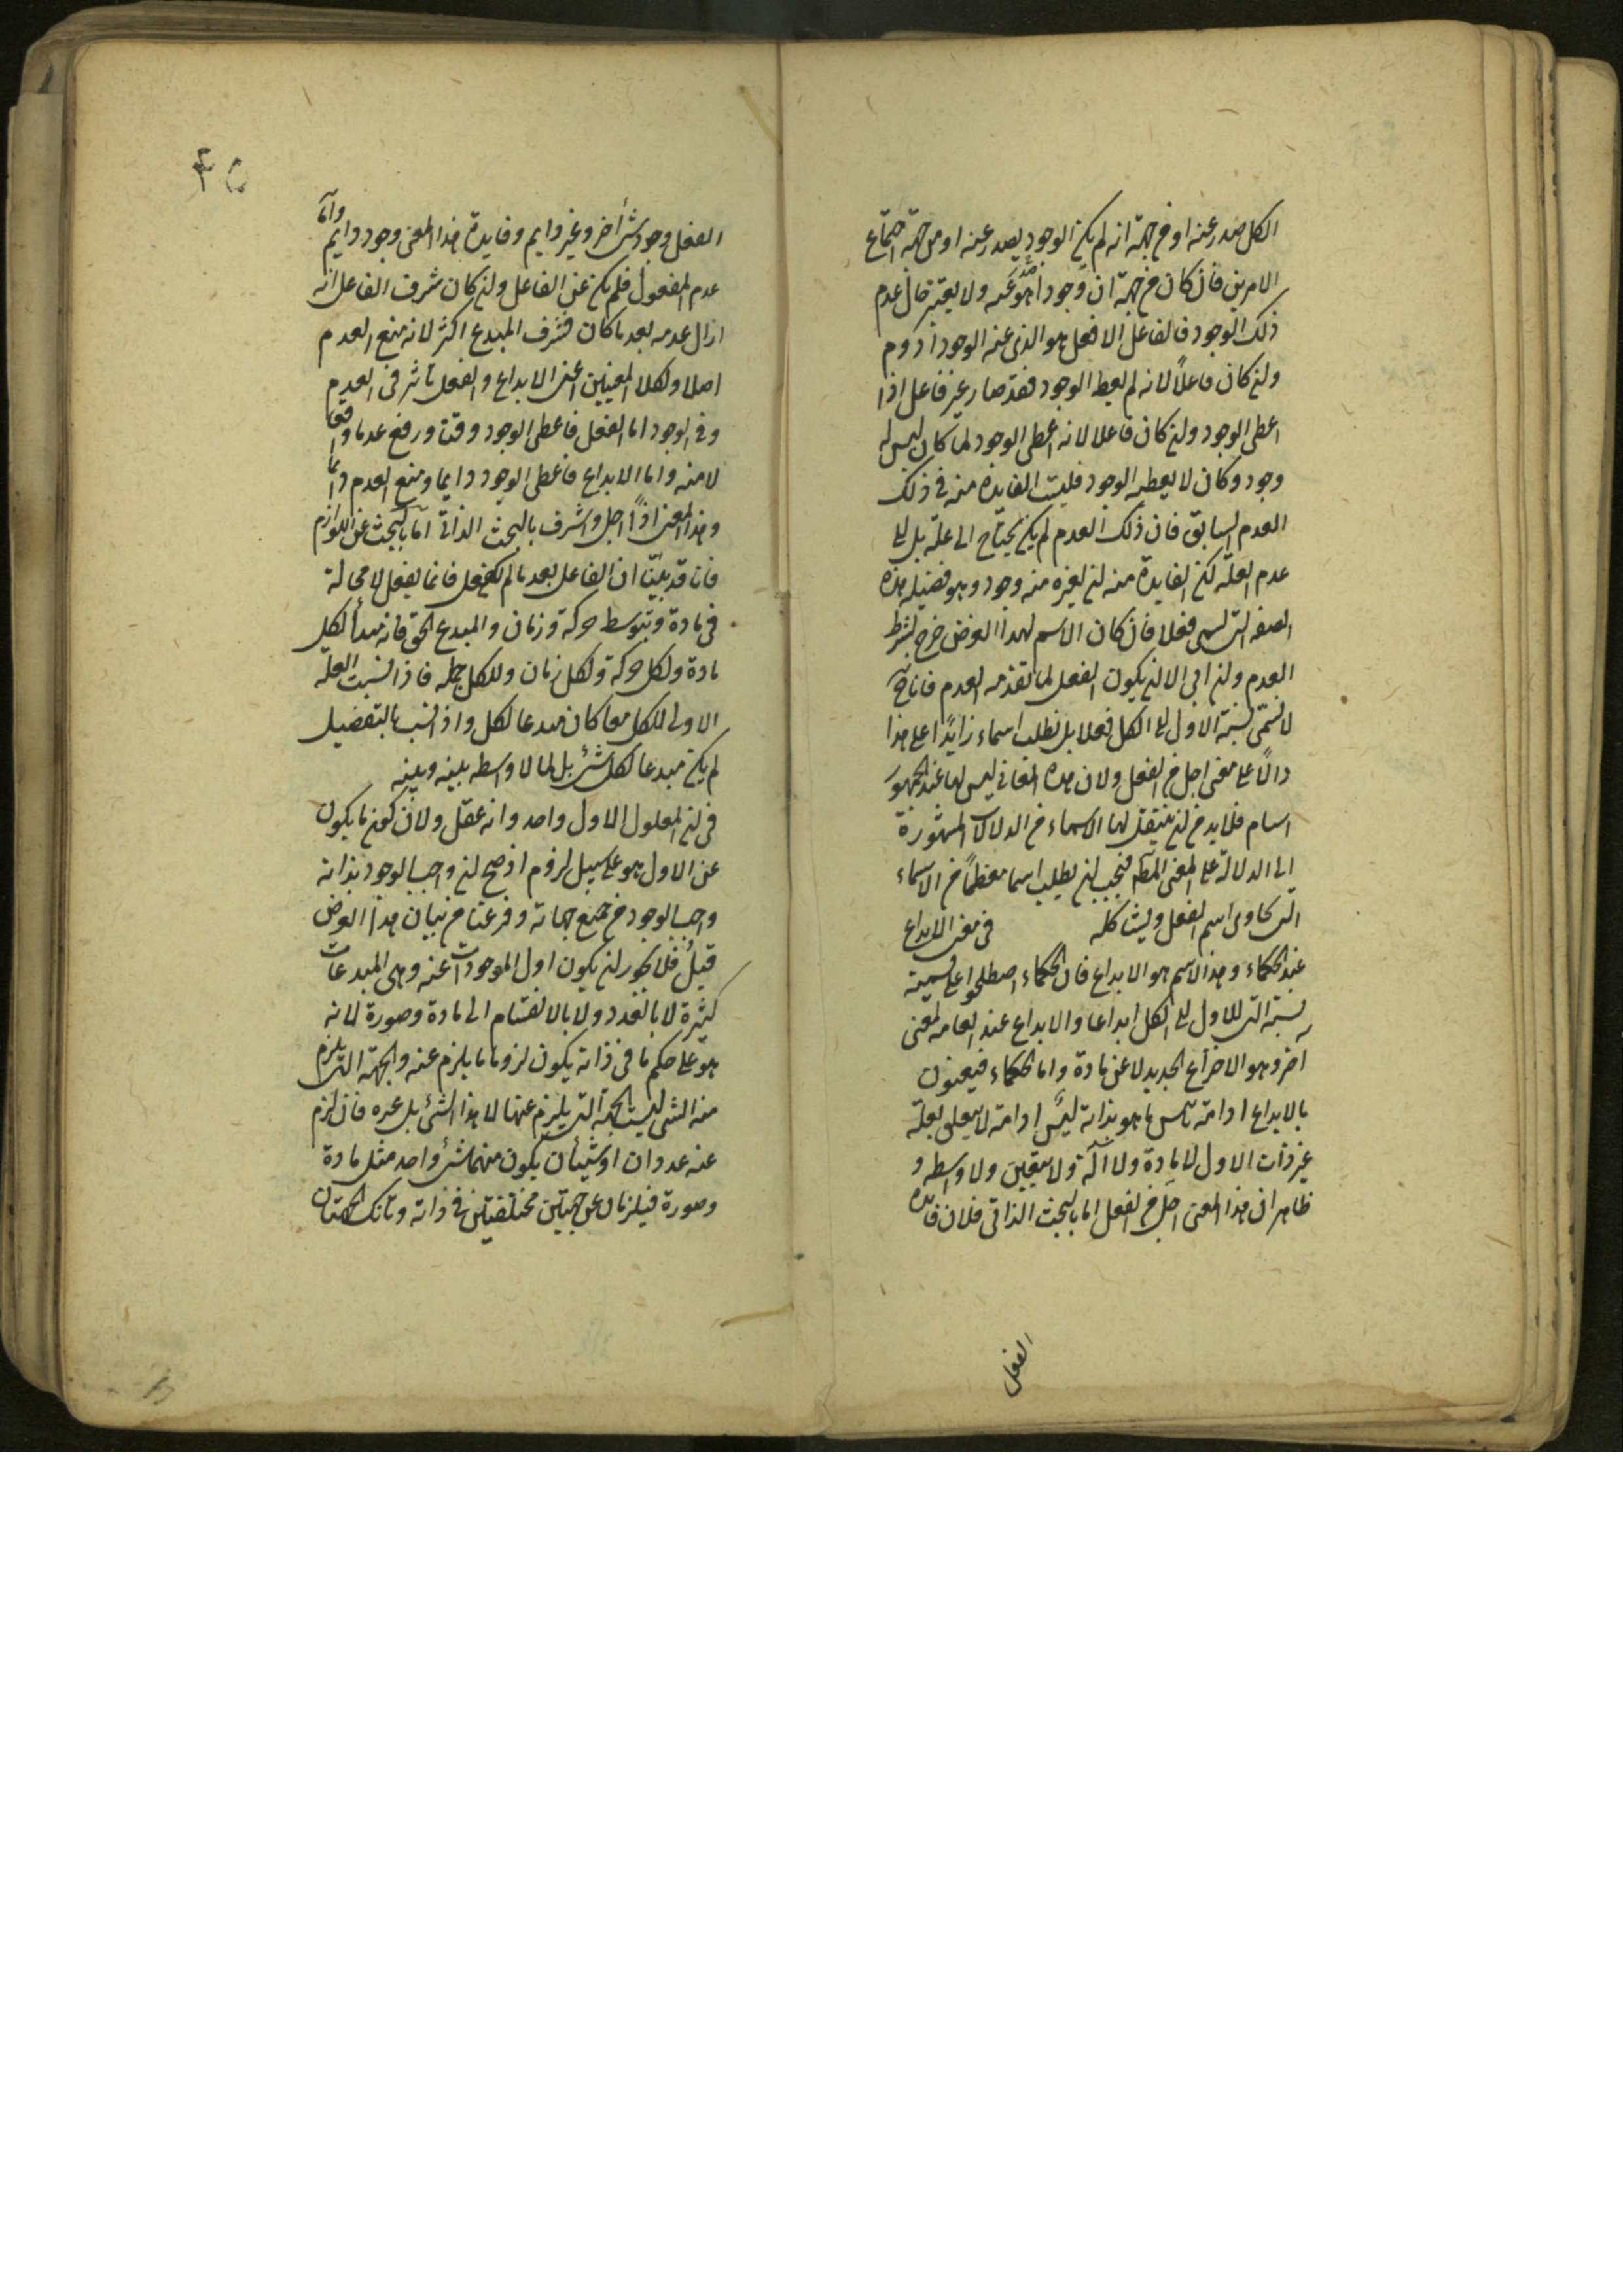 الكل صدر عنه او من جهة انه لم يكن الوجود يصدر عنه او من جهة اجتماع
الامرين فان كان من جهة ان وجودا هو عنه ولا يعتبر حال عدم
ذلك الوجود فالفاعل الافضل هو الذى عنه الوجود ادوم
ولئن كان فاعلاً لانه لم يعط الوجود فقد صار غير فاعل اذا
اعطى الوجود ولئن كان فاعلا لانه اعطى الوجود لما كان ليس له
وجود وكان لا يعطيه الوجود فليست الفايدة منه فى ذلك
العدم السابق فان ذلك العدم لم يكن يحتاج الى علة بل الى
عدم العلة لكن الفايدة منه ان لغيره منه وجود وهو فضيلة هذه
الصفة التى تسمى فعلا فان كان الاسم لهذا الغرض خرج بشرط
العدم ولئن ابى الا ان يكون الفعل لما تقدمه العدم فانا نحن
لا نسمى نسبة الاول الى الكل فعلا بل نطلب اسماء زايدًا على هذا
دالًا على معنى اجل من الفعل ولان هذه المعانى ليس لها عند الجمهور
اسام فلا بد من ان ينتقل لها الاسماء من الدلالات المشهورة
الى الدلالة على المعنى فيجب ان يطلب اسما معظمًا من الاسماء
التى تحاوى اسم الفعل ويشاكله فى معنى الابداع
عند الحكماء وهذا الاسم هو الابداع فان الحكماء اصطلحوا على تسمية
نسبته التى للاول الى الكل ابداعا والابداع عند العامه لمعنى
اخر وهو الاختراع الجديد لا عن مادة واما الحكماء فيعنون
بالابداع ادامة تاييس ما هو بذاته ليس ادامة لا يتعلق بعلة
غير ذات الاول لا مادة ولا آلة ولا معين ولا واسطه و
ظاهر ان هذا المعنى اجل من الفعل اما بالبحث الذاتى فلان فايدة
الفعل
٤٥
الفعل وجود شئ أخر وغير دايم وفايدة هذا المعنى وجود دايم واما
عدم المفعول فلم يكن عن الفاعل ولئن كان شرف الفاعل انه
ازال عدمه بعد ما كان فشرف المبدع اكثر لانه منع العدم
اصلا ولكلا المعنيين اعنى الابداع والفعل تاثير فى العدم
وفى الوجود اما الفعل فاعطى الوجود وقتا ورفع عدما وقتا
لا منه واما الابداع فاعطى الوجود دايما ومنع العدم دائما
وهذا المعنى اذًا اجل واشرف بالبحث الذاتى اما بالبحث عن اللوازم
فانا قد بيّنّا ان الفاعل بعد ما لم يفعل فانما يفعل لا محالة
فى مادة وبتوسط حركة وزمان والمبدع الحق فانه مبدأ لكل
مادة ولكل حركة ولكل زمان وللكل جملة فاذا نسبت العلة
الاولى للكل معا كان مبدعا لكل واذا نسب بالتفضيل
لم يكن مبدعا لكل شئ بل لما لا واسطه بينه وبينه
فى ان المعلول الاول واحد وانه عقل ولان كون ما يكون
عن الاول هو على سبيل لزوم اذ صح ان واجب الوجود بذاته
واجب الوجود من جميع جهاته وفرغنا من بيان هذا الغرض
قبل فلا يجوز ان يكون اول الموجودات عنه وهى المبدعات
كثيرة لا بالعدد ولا بالانقسام الى مادة وصورة لانه
هو على حكم ما فى ذاته يكون لزوما ما يلزم عنه والجهة التى يلزم
منه الشى ليست الجهة التى يلزم عنها لا هذا الشئ بل غيره فان لزم
عنه عددان او شيئان يكون منهما شئ واحد مثل مادة
وصورة فيلزمان عن جهتين مختلفتين فى ذاته وتانك الجهتان